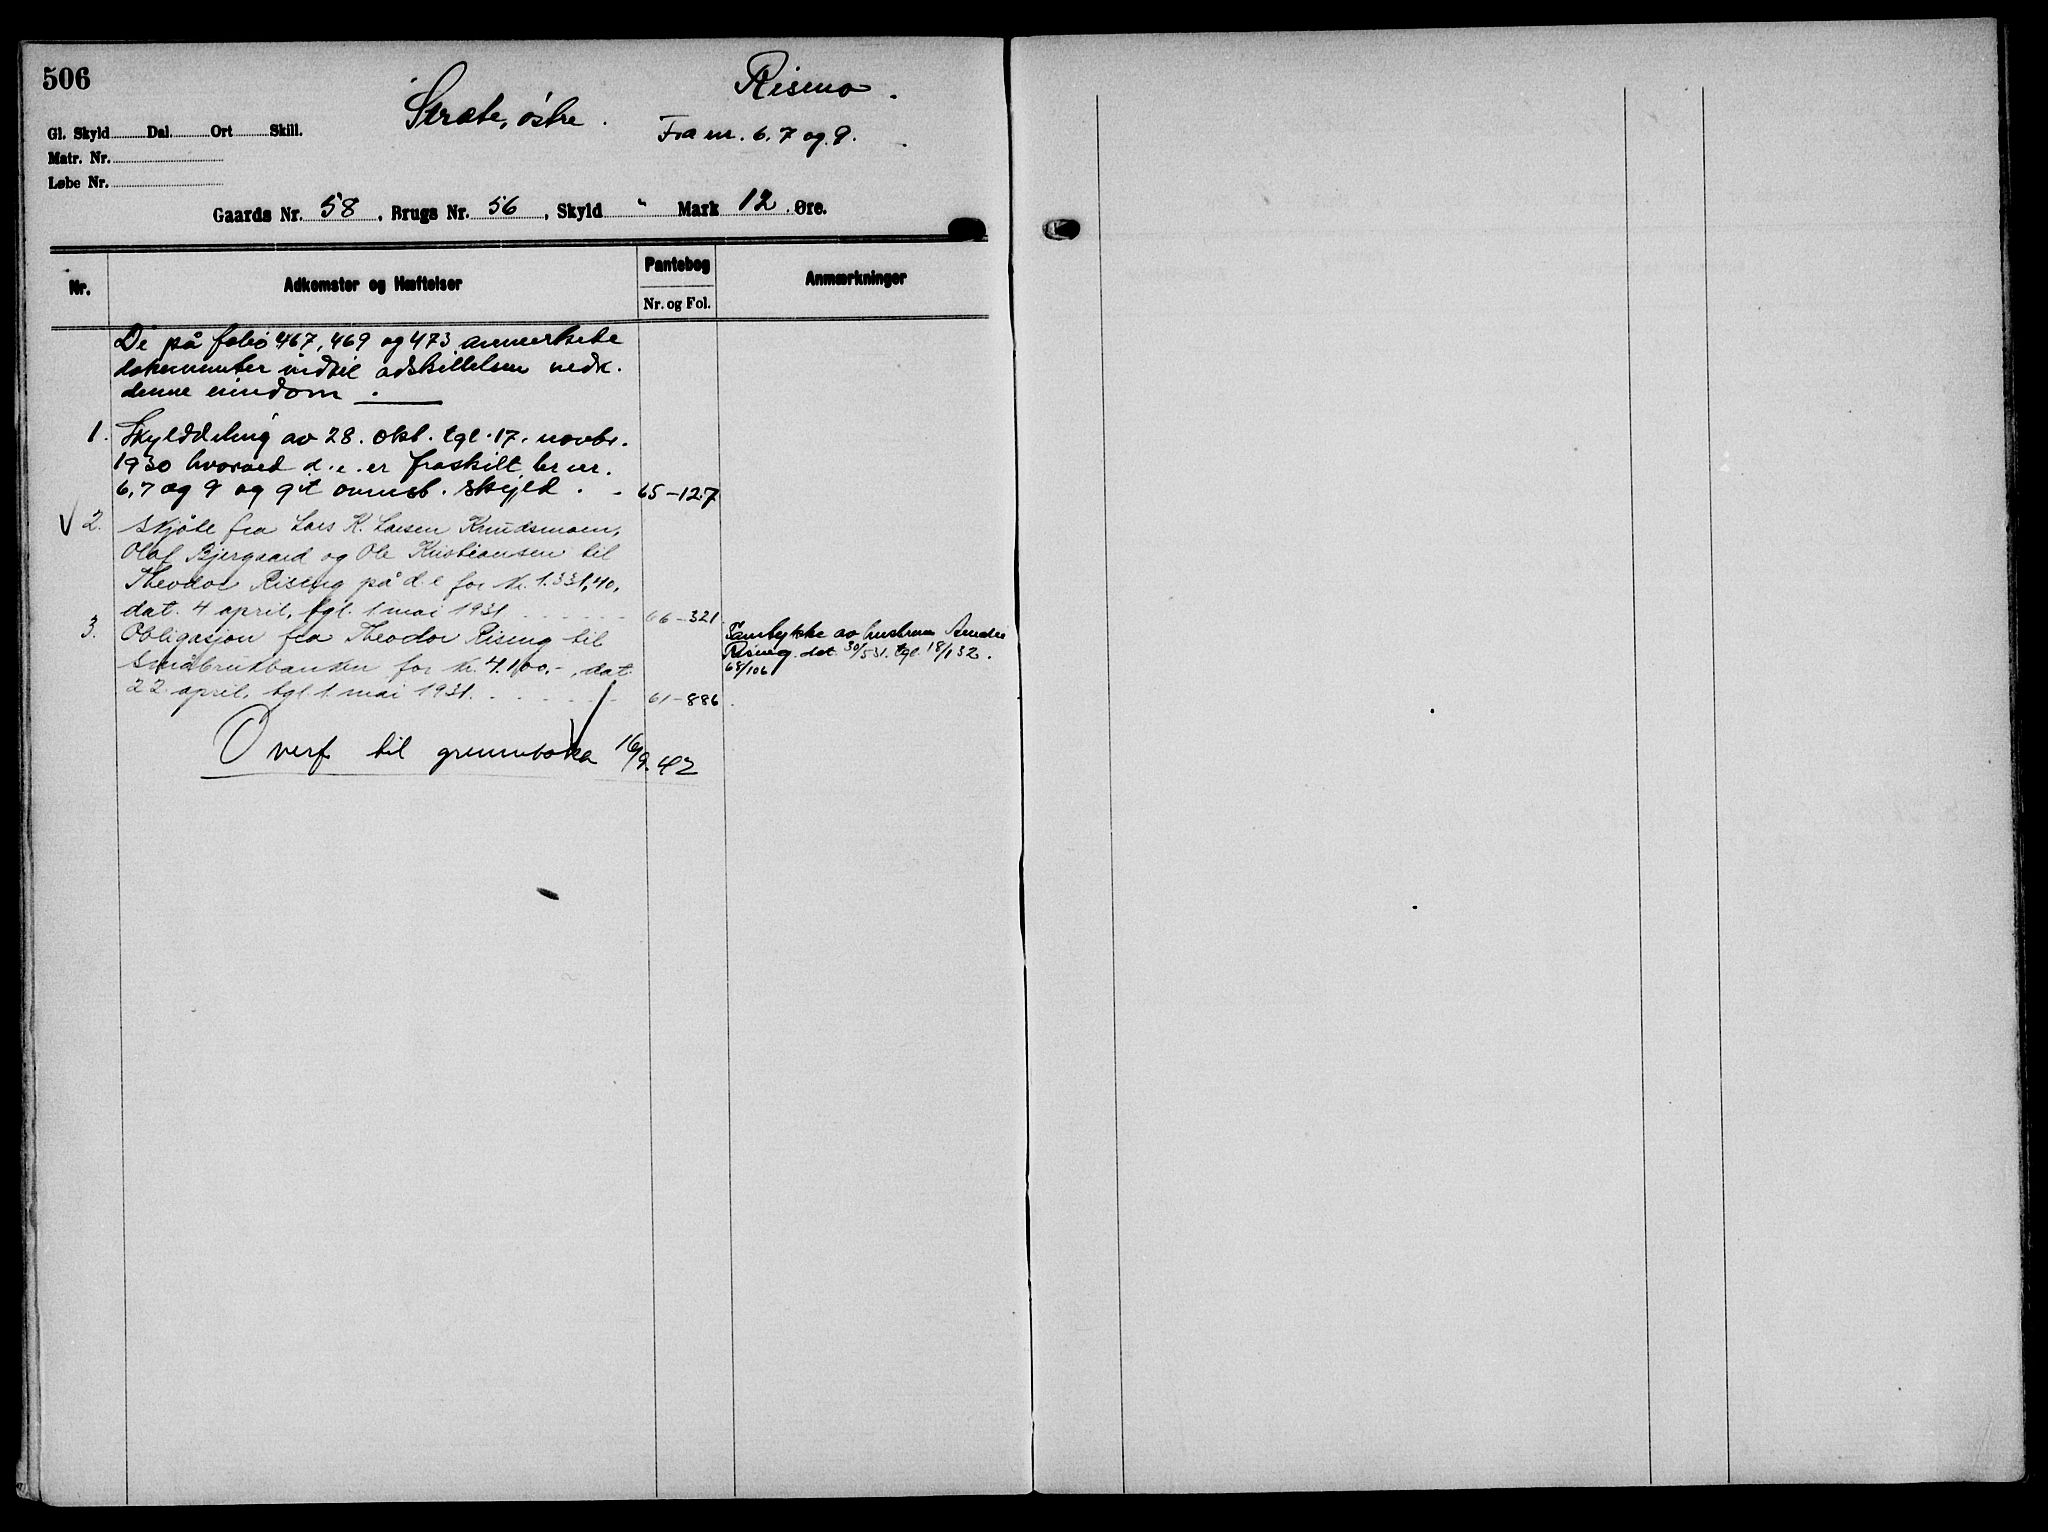 506
Stræte, østre.
Rismo.
Fra nr. 6, 7 og 9.
Gl. Skyld Dal. Ort Skill.
Matr. Nr.
Løbe Nr.
Gaards Nr. 58, Brugs Nr. 56, Skyld " Mark 12 Øre.
Nr. Adkomster og Hæftelser Pantebog Anmærkninger
Nr. og Fol.
De på folio 467, 469 og 473 anmerkete
dokumenter indtil adskillelsen vedk.
denne eiendom.
1. Skylddeling av 28. okt. tgl. 17. novbr.
1930 hvorved d. e. er fraskilt br nr.
6, 7 og 9 og git ovennt. skyld. 65-127
√ 2. Skjøte fra Lars K. Larsen Knudsmoen,
Olaf Bjergaard og Ole Kristiansen til
Theodor Rising på d. e for kr. 1.331,40,
dat. 4 april, tgl. 1 mai 1931 66-321
3. Obligasjon fra Theodor Rising til
Småbrukbanken for kr. 4.100.-, dat.
22. april, tgl 1 mai 1931. 61-886
Samtykke av hustruen
Rising dat 30/5 31. tgl 18/1 32.
68/106
Overf til grunnboka 16/9.42